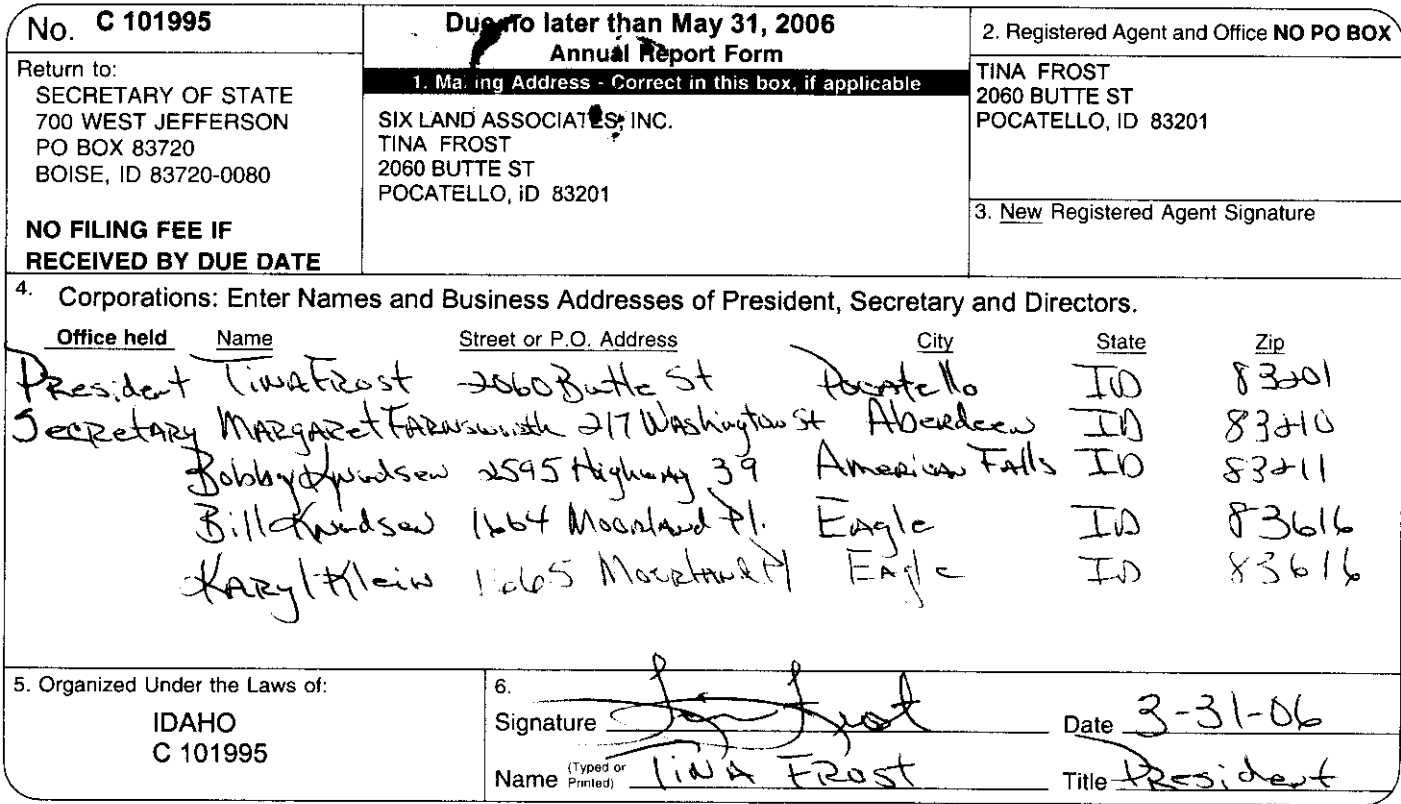 No. C 101995
Return to:
SECRETARY OF STATE
700 WEST JEFFERSON
PO BOX 83720
BOISE, ID 83720-0080
NO FILING FEE IF
RECEIVED BY DUE DATE
Due no later than May 31, 2006
Annual Report Form
1. Mailing Address - Correct in this box, if applicable
SIX LAND ASSOCIATES, INC.
TINA FROST
2060 BUTTE ST
POCATELLO, ID 83201
2. Registered Agent and Office NO PO BOX
TINA FROST
2060 BUTTE ST
POCATELLO, ID 83201
3. New Registered Agent Signature
4. Corporations: Enter Names and Business Addresses of President, Secretary and Directors.
Office held Name Street or P.O. Address City State Zip
President Tina Frost 2060 Butte St Pocatello ID 83201
Secretary Margaret Farnsworth 217 Washington St Aberdeen ID 83210
Bobby Knudsen 2595 Highway 39 American Falls ID 83211
Bill Knudsen 1664 Moorland Pl. Eagle ID 83616
Karyl Klein 1665 Moorland Pl Eagle ID 83616
5. Organized Under the Laws of:
IDAHO
C 101995
6.
Signature Tina Frost Date 3-31-06
Name (Typed or Printed) Tina Frost Title President